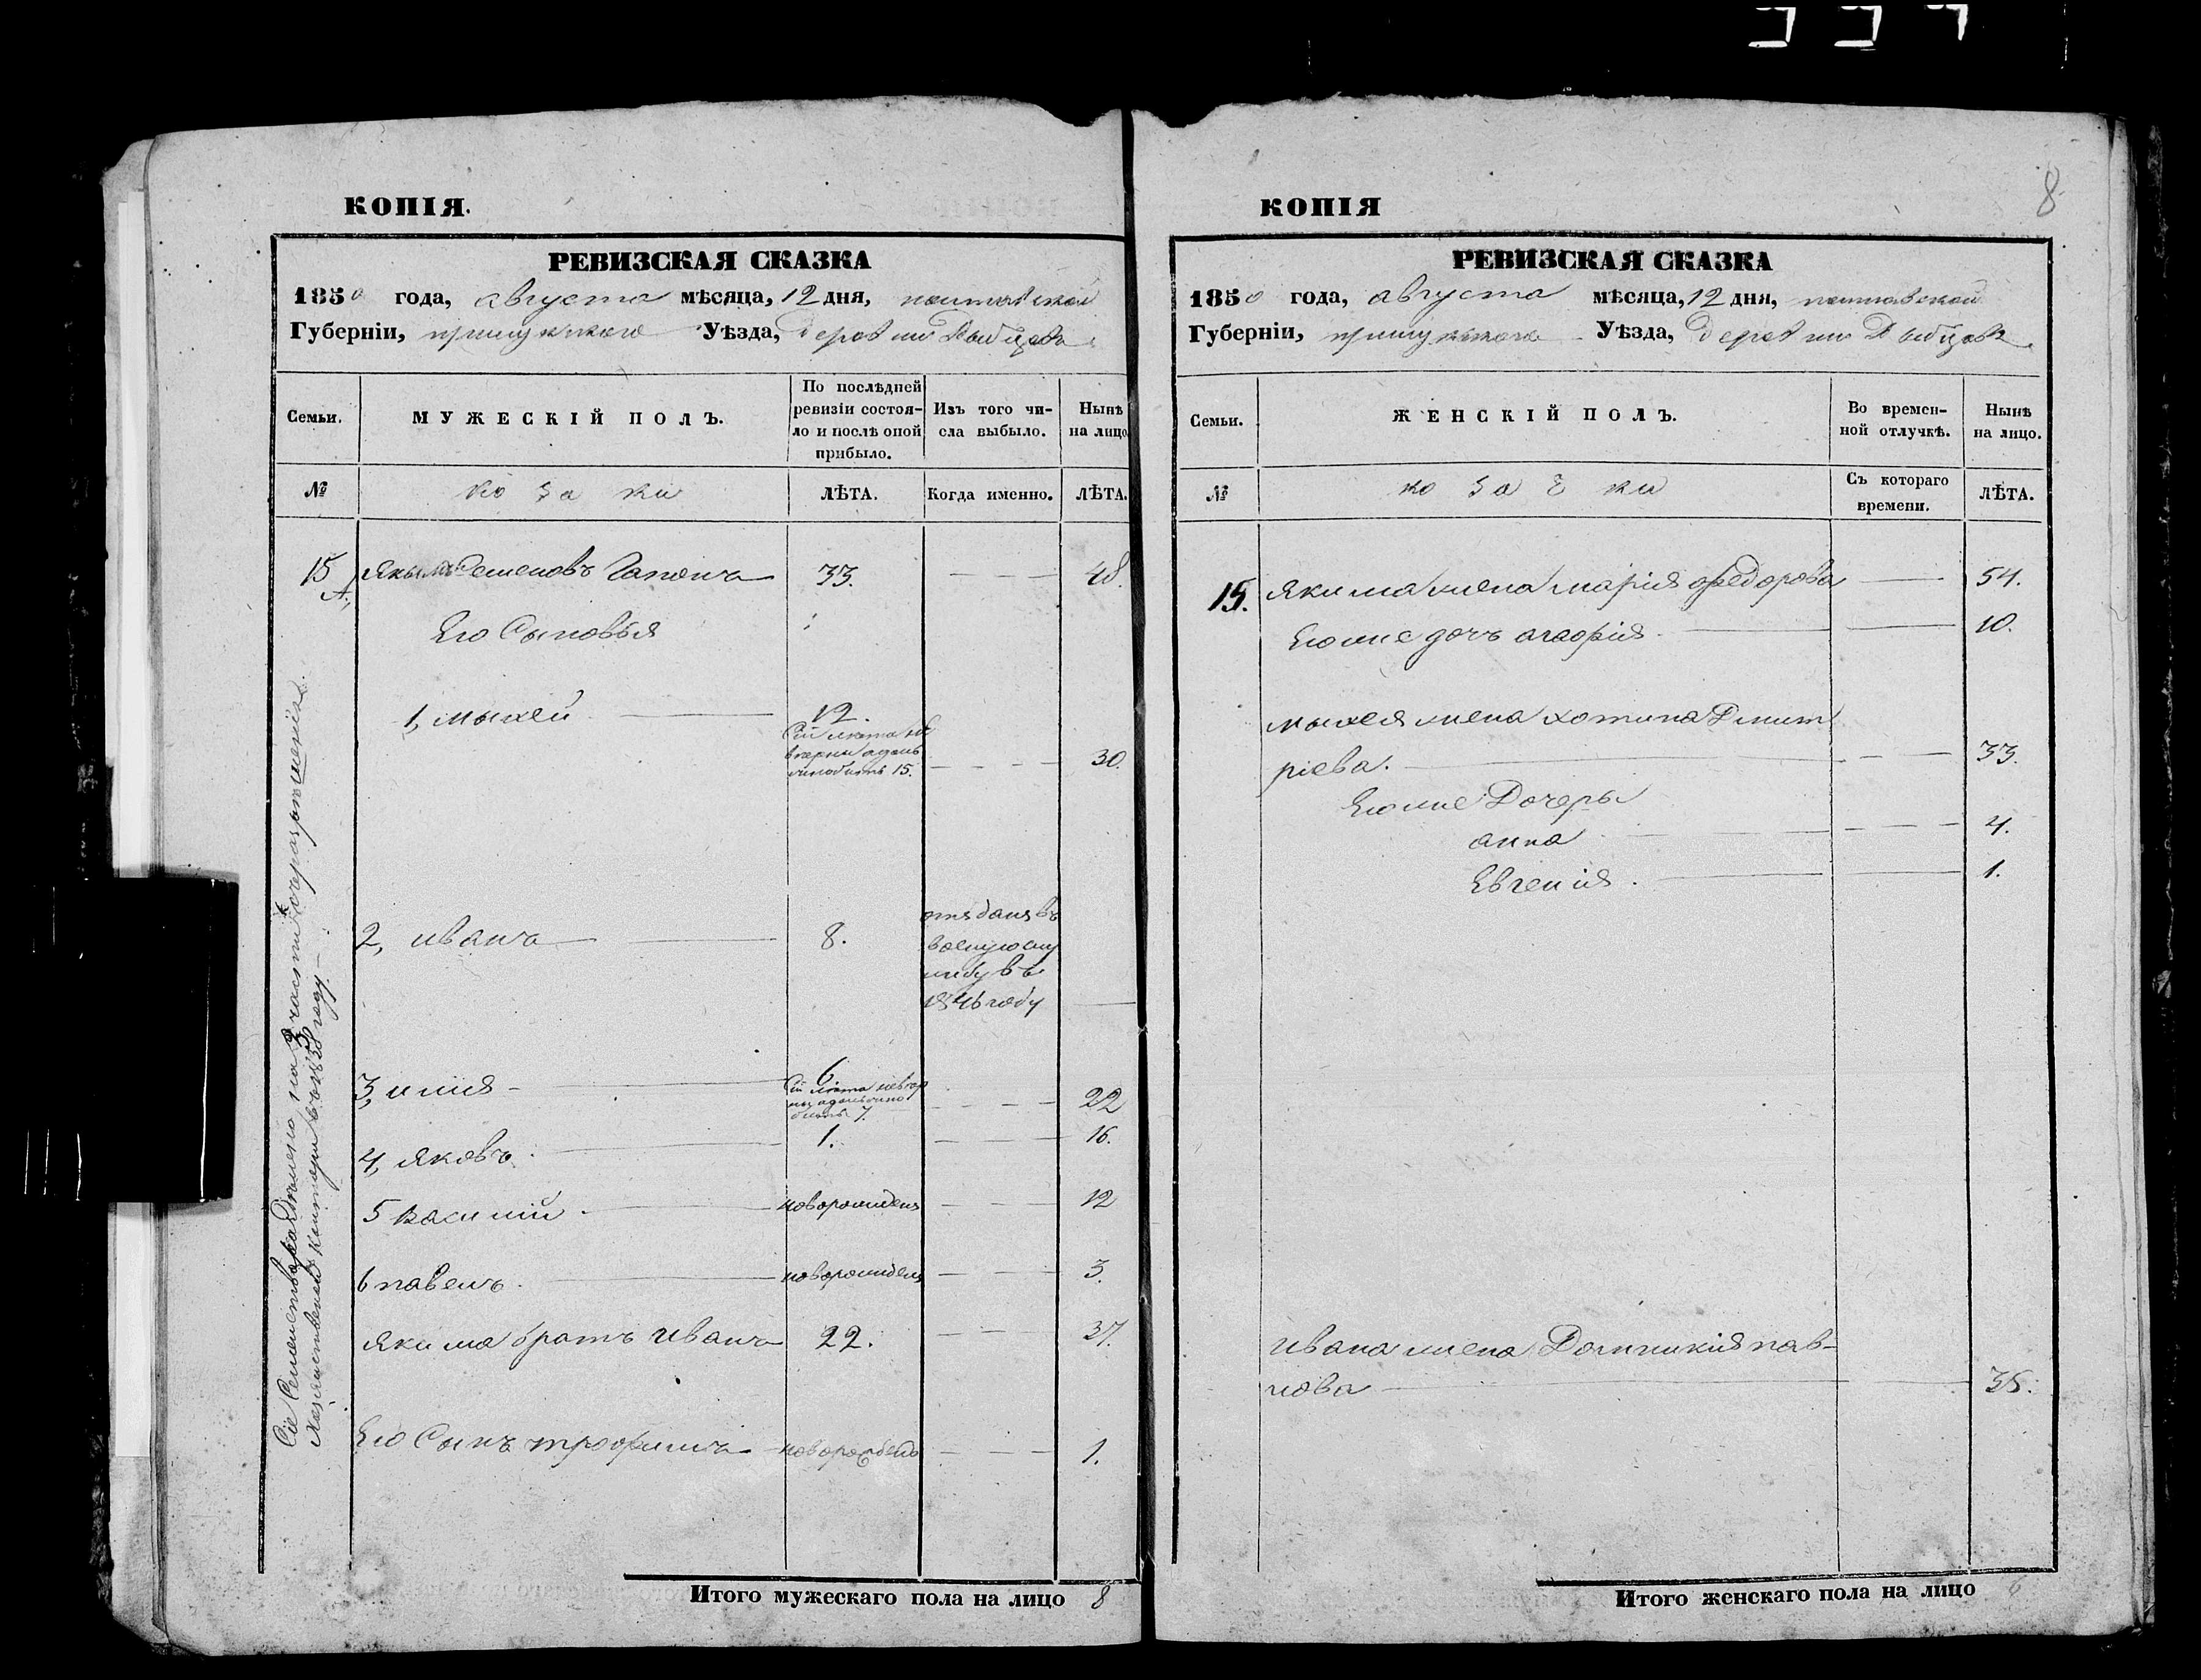 КОПІЯ.
РЕВИЗСКАЯ СКАЗКА
1850 года, августа мѣсяца, 12 дня, полтавской
Губерніи, прилукскаго Уѣзда, деревни
Семьи.
МУЖЕСКІЙ ПОЛЪ.
По послѣдней
ревизіи состоя-
ло и послѣ оной
прибыло.
Изъ того чи-
сла выбыло.
Нынѣ
на лицо.
№
козаки
ЛѢТА.
Когда именно.
ЛѢТА.
15 Якимъ Семеновъ Гапонъ 33. 48.
Его Сыновья
1, Михей 12.
лѣта
15. 30.
2, иванъ 8.
отданъ въ
военную слу
жбу въ
1846 году
3, илия 6
лѣта
7. 22
4, Яковъ 1. 16.
5 василій новорожденъ 12
6 павелъ новорожденъ 3.
Якима братъ иванъ 22. 37.
Его Сынъ трофимъ новорожденъ 1.
Сіе Семейство на 3 части
въ 1858 году
Итого мужескаго пола на лицо 8
8
КОПІЯ
РЕВИЗСКАЯ СКАЗКА
1850 года, августа мѣсяца, 12 дня, полтавской
Губерніи, прилукскаго Уѣзда, деревни
Семьи.
ЖЕНСКІЙ ПОЛЪ.
Во времен-
ной отлучкѣ.
Нынѣ
на лицо.
№
козачки
Съ котораго
времени.
ЛѢТА.
15. Якима жена марія федорова 54.
Его же дочь агафія 10.
михея жена хотина Дмит
ріева. 33.
Его же Дочеры
анна 4.
Евгенія. 1.
ивана жена Домникія пав-
лова 35.
Итого женскаго пола на лицо 6